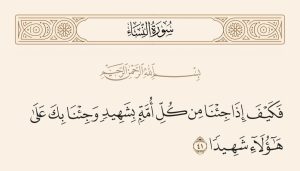 سُورَةُ النِّسَاءِ
بِسْمِ اللَّهِ الرَّحْمَٰنِ الرَّحِيمِ
فَكَيْفَ إِذَا جِئْنَا مِن كُلِّ أُمَّةٍۭ بِشَهِيدٍ وَجِئْنَا بِكَ عَلَىٰ
هَٰٓؤُلَآءِ شَهِيدًا ٤١